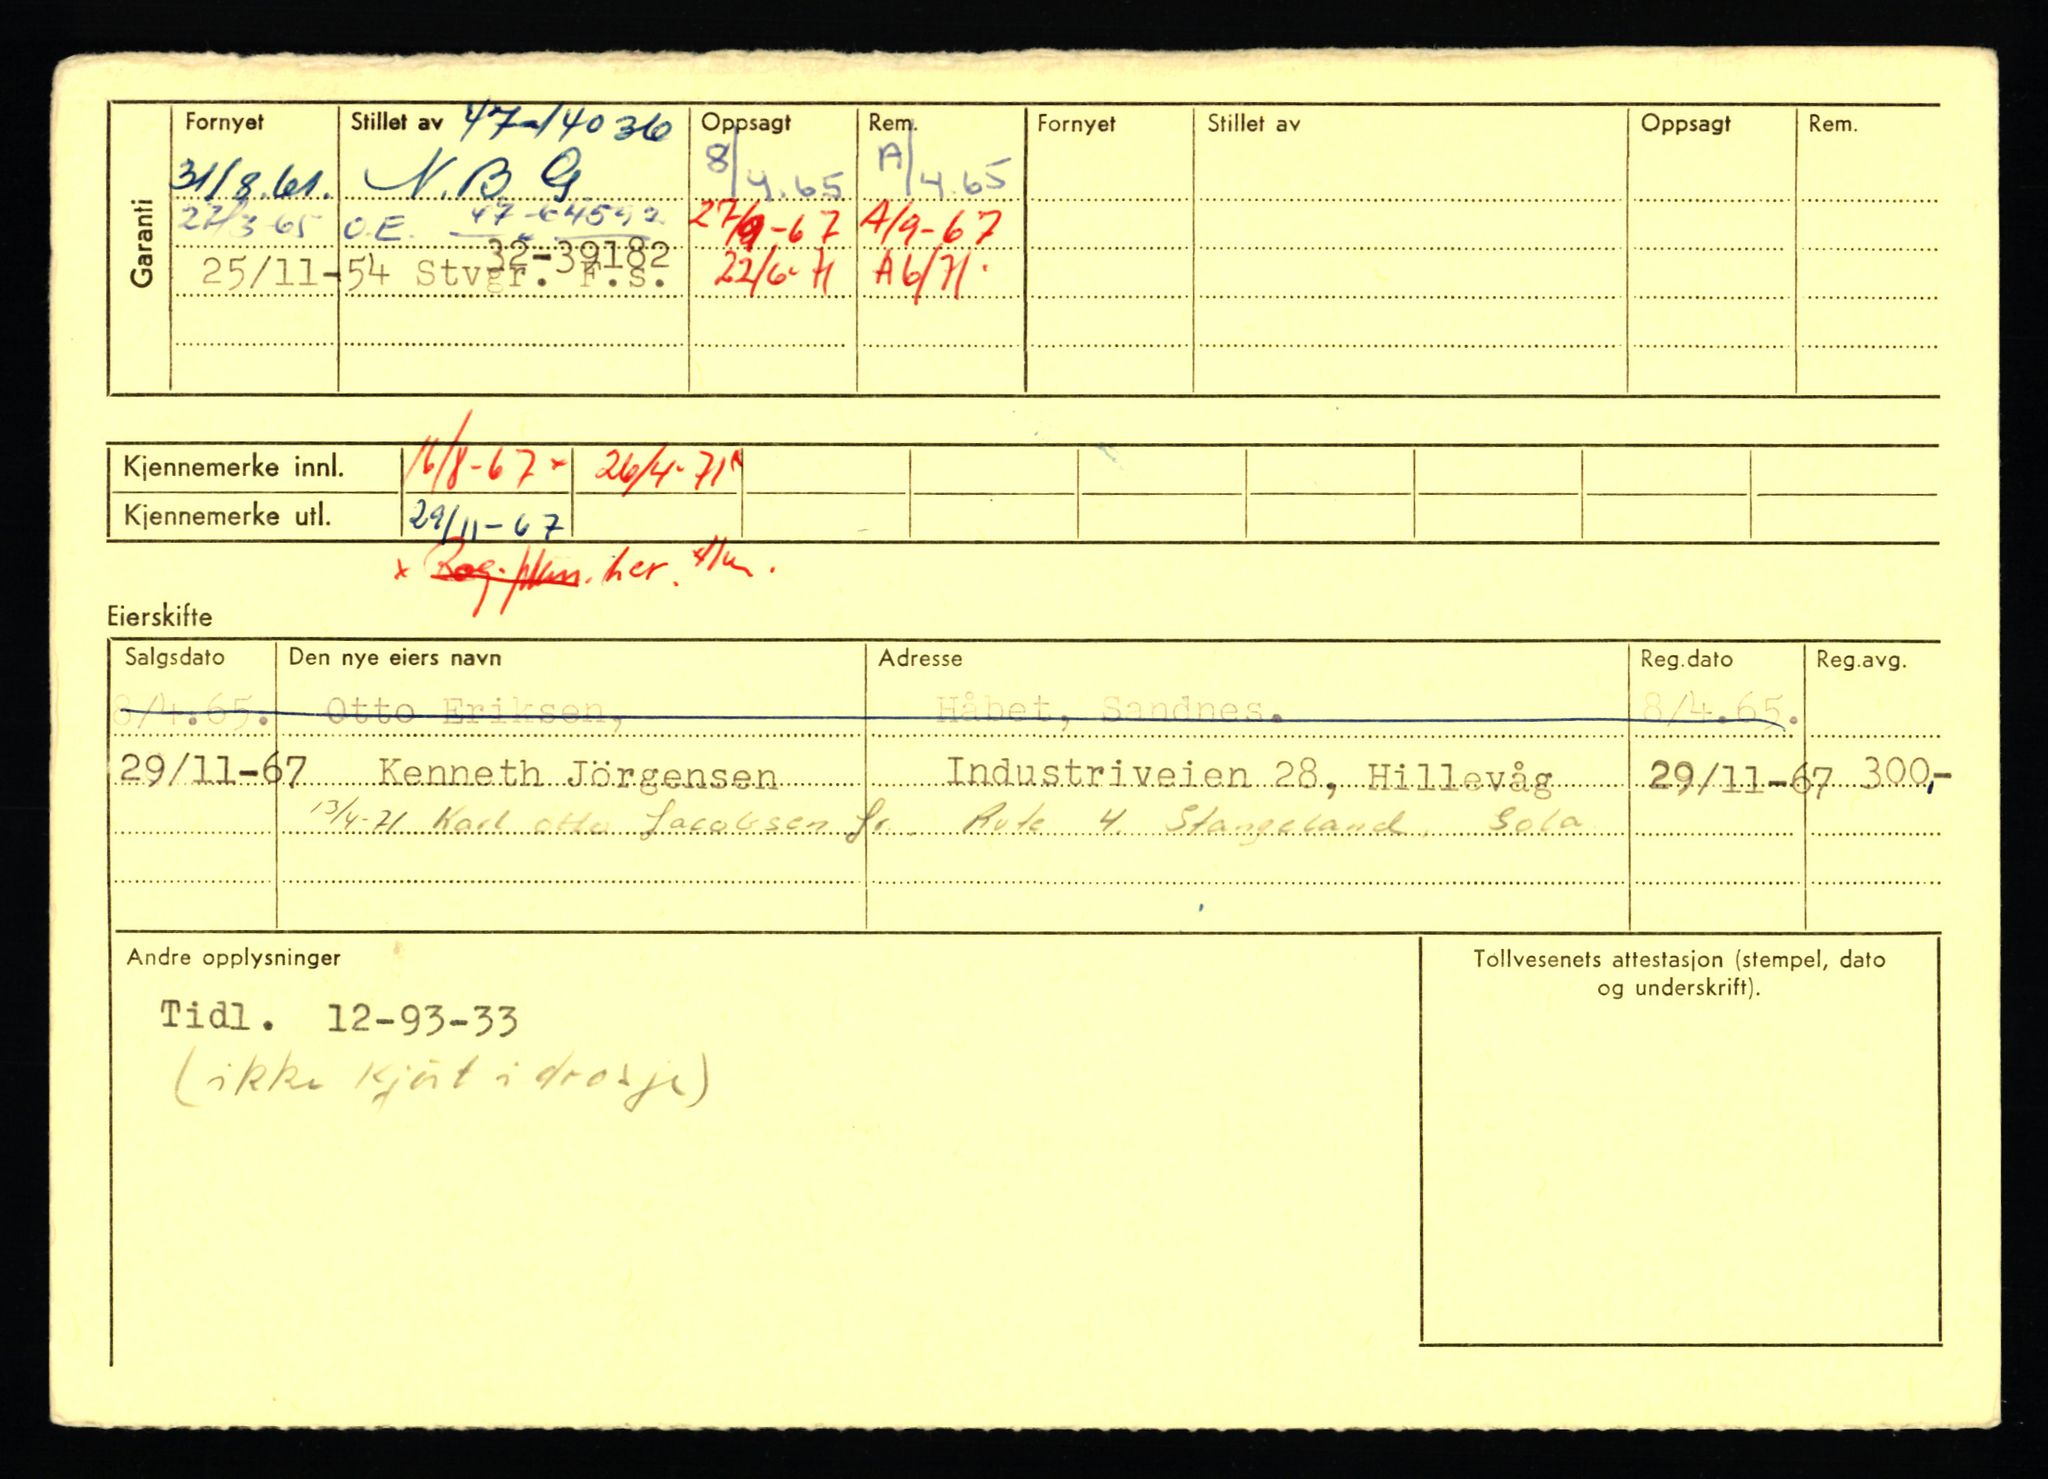 Garanti
Fornyet Stillet av 47-14036 Oppsagt Rem. Fornyet Stillet av Oppsagt Rem.
31/8.61. N.B G 8/4.65 A/4.65
27/3-65 O.E. 27/9-67 A/9-67
32-39182
25/11-54 Stvgr. F.s. 22/6-71 A6/71.
Kjennemerke innl. 16/8-67 x 26/4-71
Kjennemerke utl. 29/11-67
x her.
Eierskifte
Salgsdato Den nye eiers navn Adresse Reg.dato Reg.avg.
8/4.65. Otto Eriksen, Håbet, Sandnes. 8/4.65.
29/11-67 Kenneth Jörgensen Industriveien 28, Hillevåg 29/11-67 300,-
13/4-71 Karl Otto Jacobsen Jr. Rute 4 Stangeland, Sola
Andre opplysninger
Tollvesenets attestasjon (stempel, dato
og underskrift).
Tidl. 12-93-33
(ikke kjört i drosje)